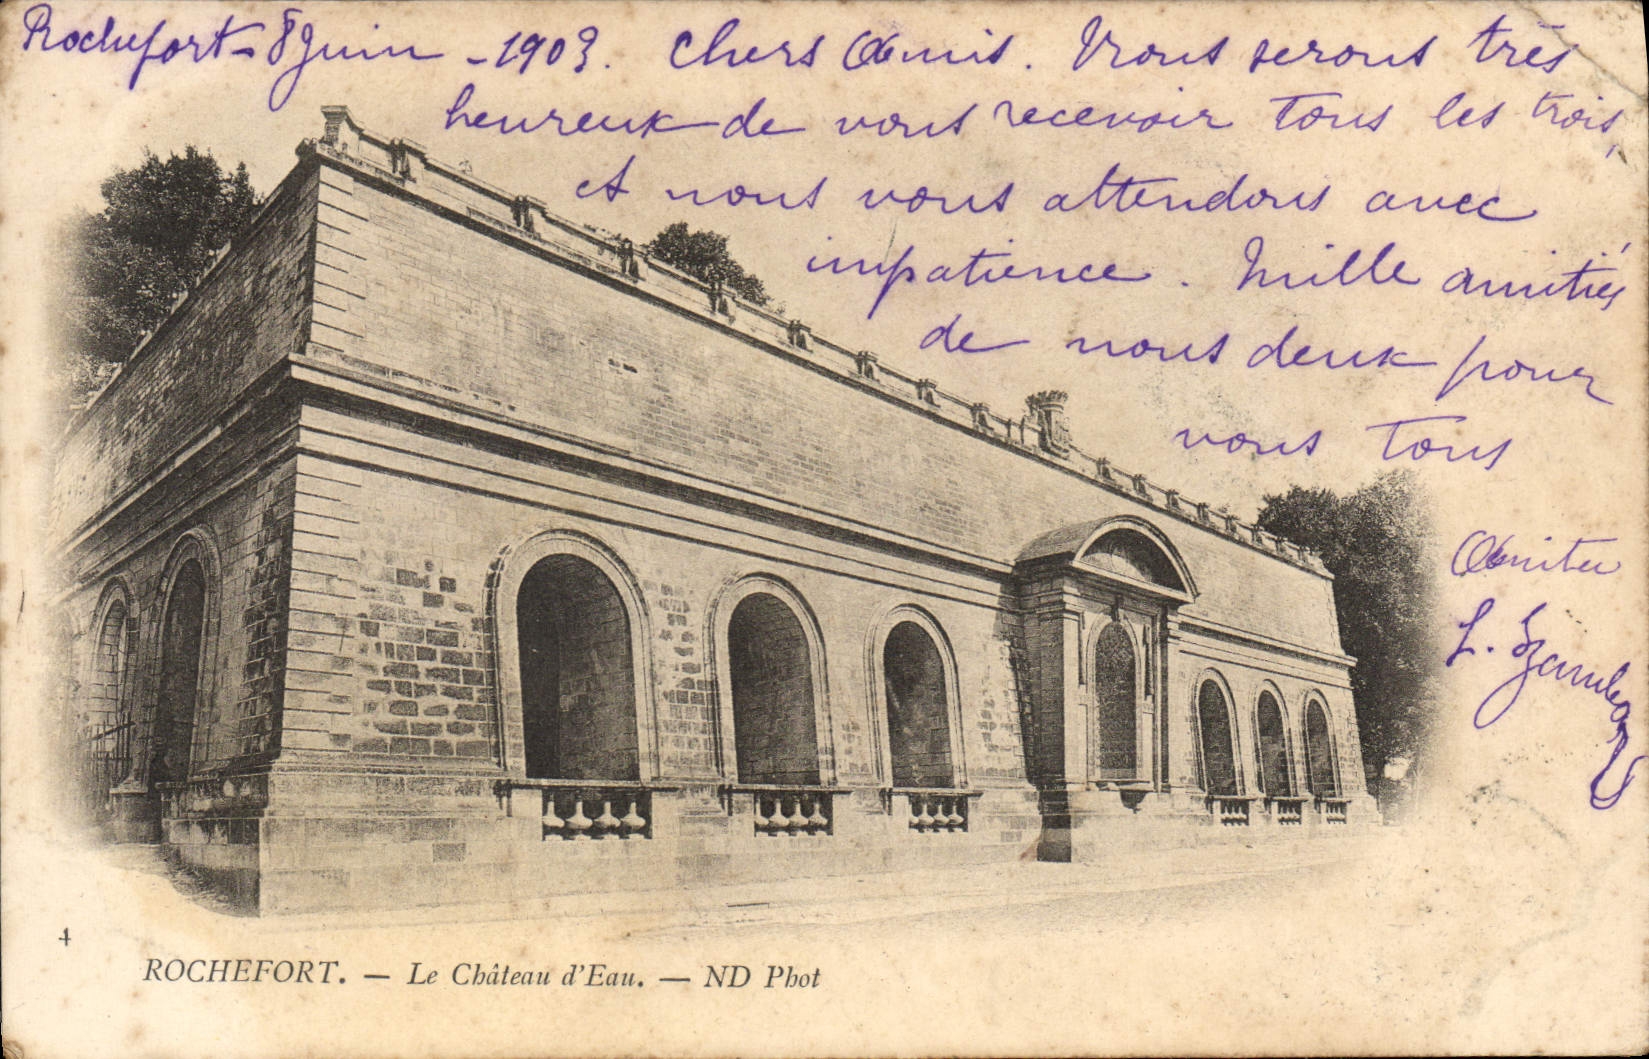 Rochefort - 8 Juin - 1903. Chers Amis. Nous serons très
heureux de vous recevoir tous les trois,
et nous vous attendons avec
impatience. Mille amitiés
de nous deux pour
vous tous
L.
4
ROCHEFORT. — Le Château d'Eau. — ND Phot